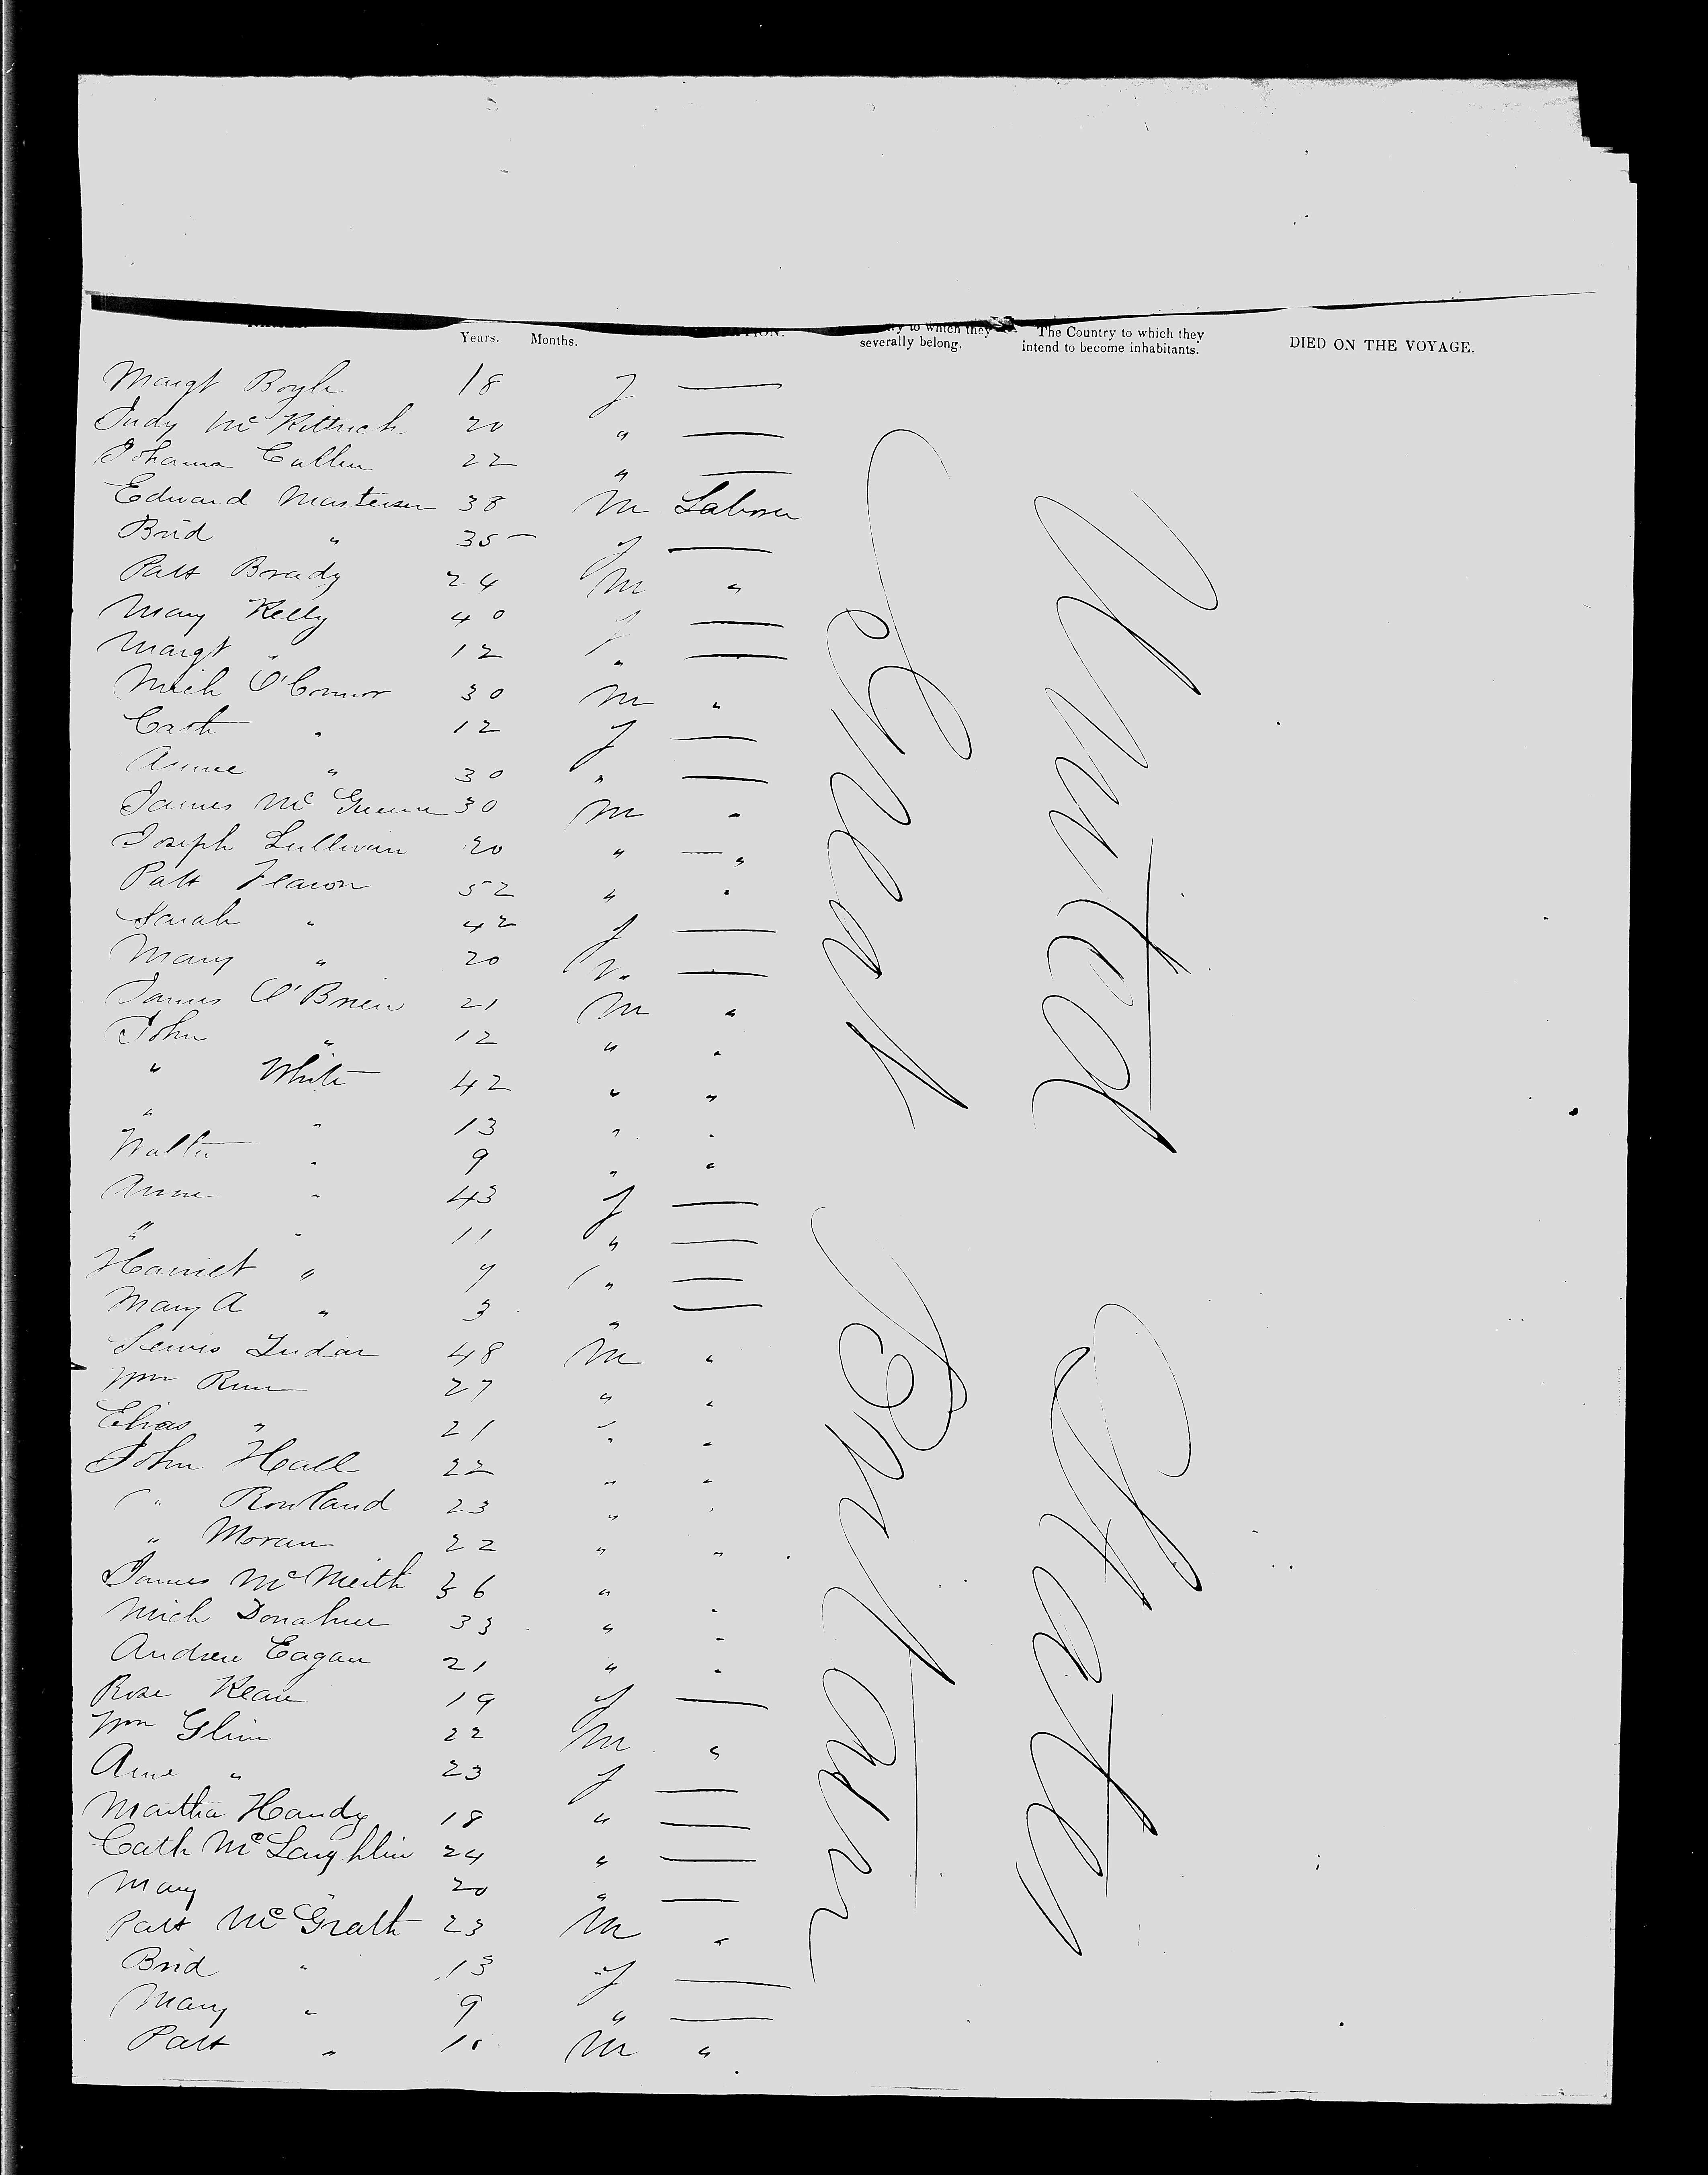 Years. Months. severally belong. The Country to which they intend to become inhabitants. DIED ON THE VOYAGE.
Margt Boyle 18 f —
Judy McKittrick 20 " —
Johanna Cullen 22 " —
Edward Masterson 38 M Laborer
Brid " 35 f —
Patt Brady 24 M "
Mary Kelly 40 f —
Margt " 12 " —
Mich O'Connor 30 M "
Cath " 12 f —
Annie " 30 " —
James Mc 30 M "
Joseph Sullivan 20 " — "
Patt 52 " "
Sarah " 42 f —
Mary " 20 " —
James O'Brien 21 M "
John " 12 " "
" White 42 " "
" " 13 " "
Walter " 9 " "
Anne " 43 f —
" " 11 " —
Harriet " 7 " —
Mary A " 3 " —
48 M "
Wm 27 " "
Elias " 21 " "
John Hall 22 " "
" Rowland 23 " "
" Moran 22 " "
James McMeith 36 " "
Mich Donahue 33 " "
Andrew Eagan 21 " "
Rose Keane 19 f —
Wm Glinn 22 M "
Anne " 23 f —
Martha Handy 18 " —
Cath McLaughlin 24 " —
Mary " 20 " —
Patt McGrath 23 M "
Brid " 13 f —
Mary " 9 " —
Patt " M "
Great Britain
United States